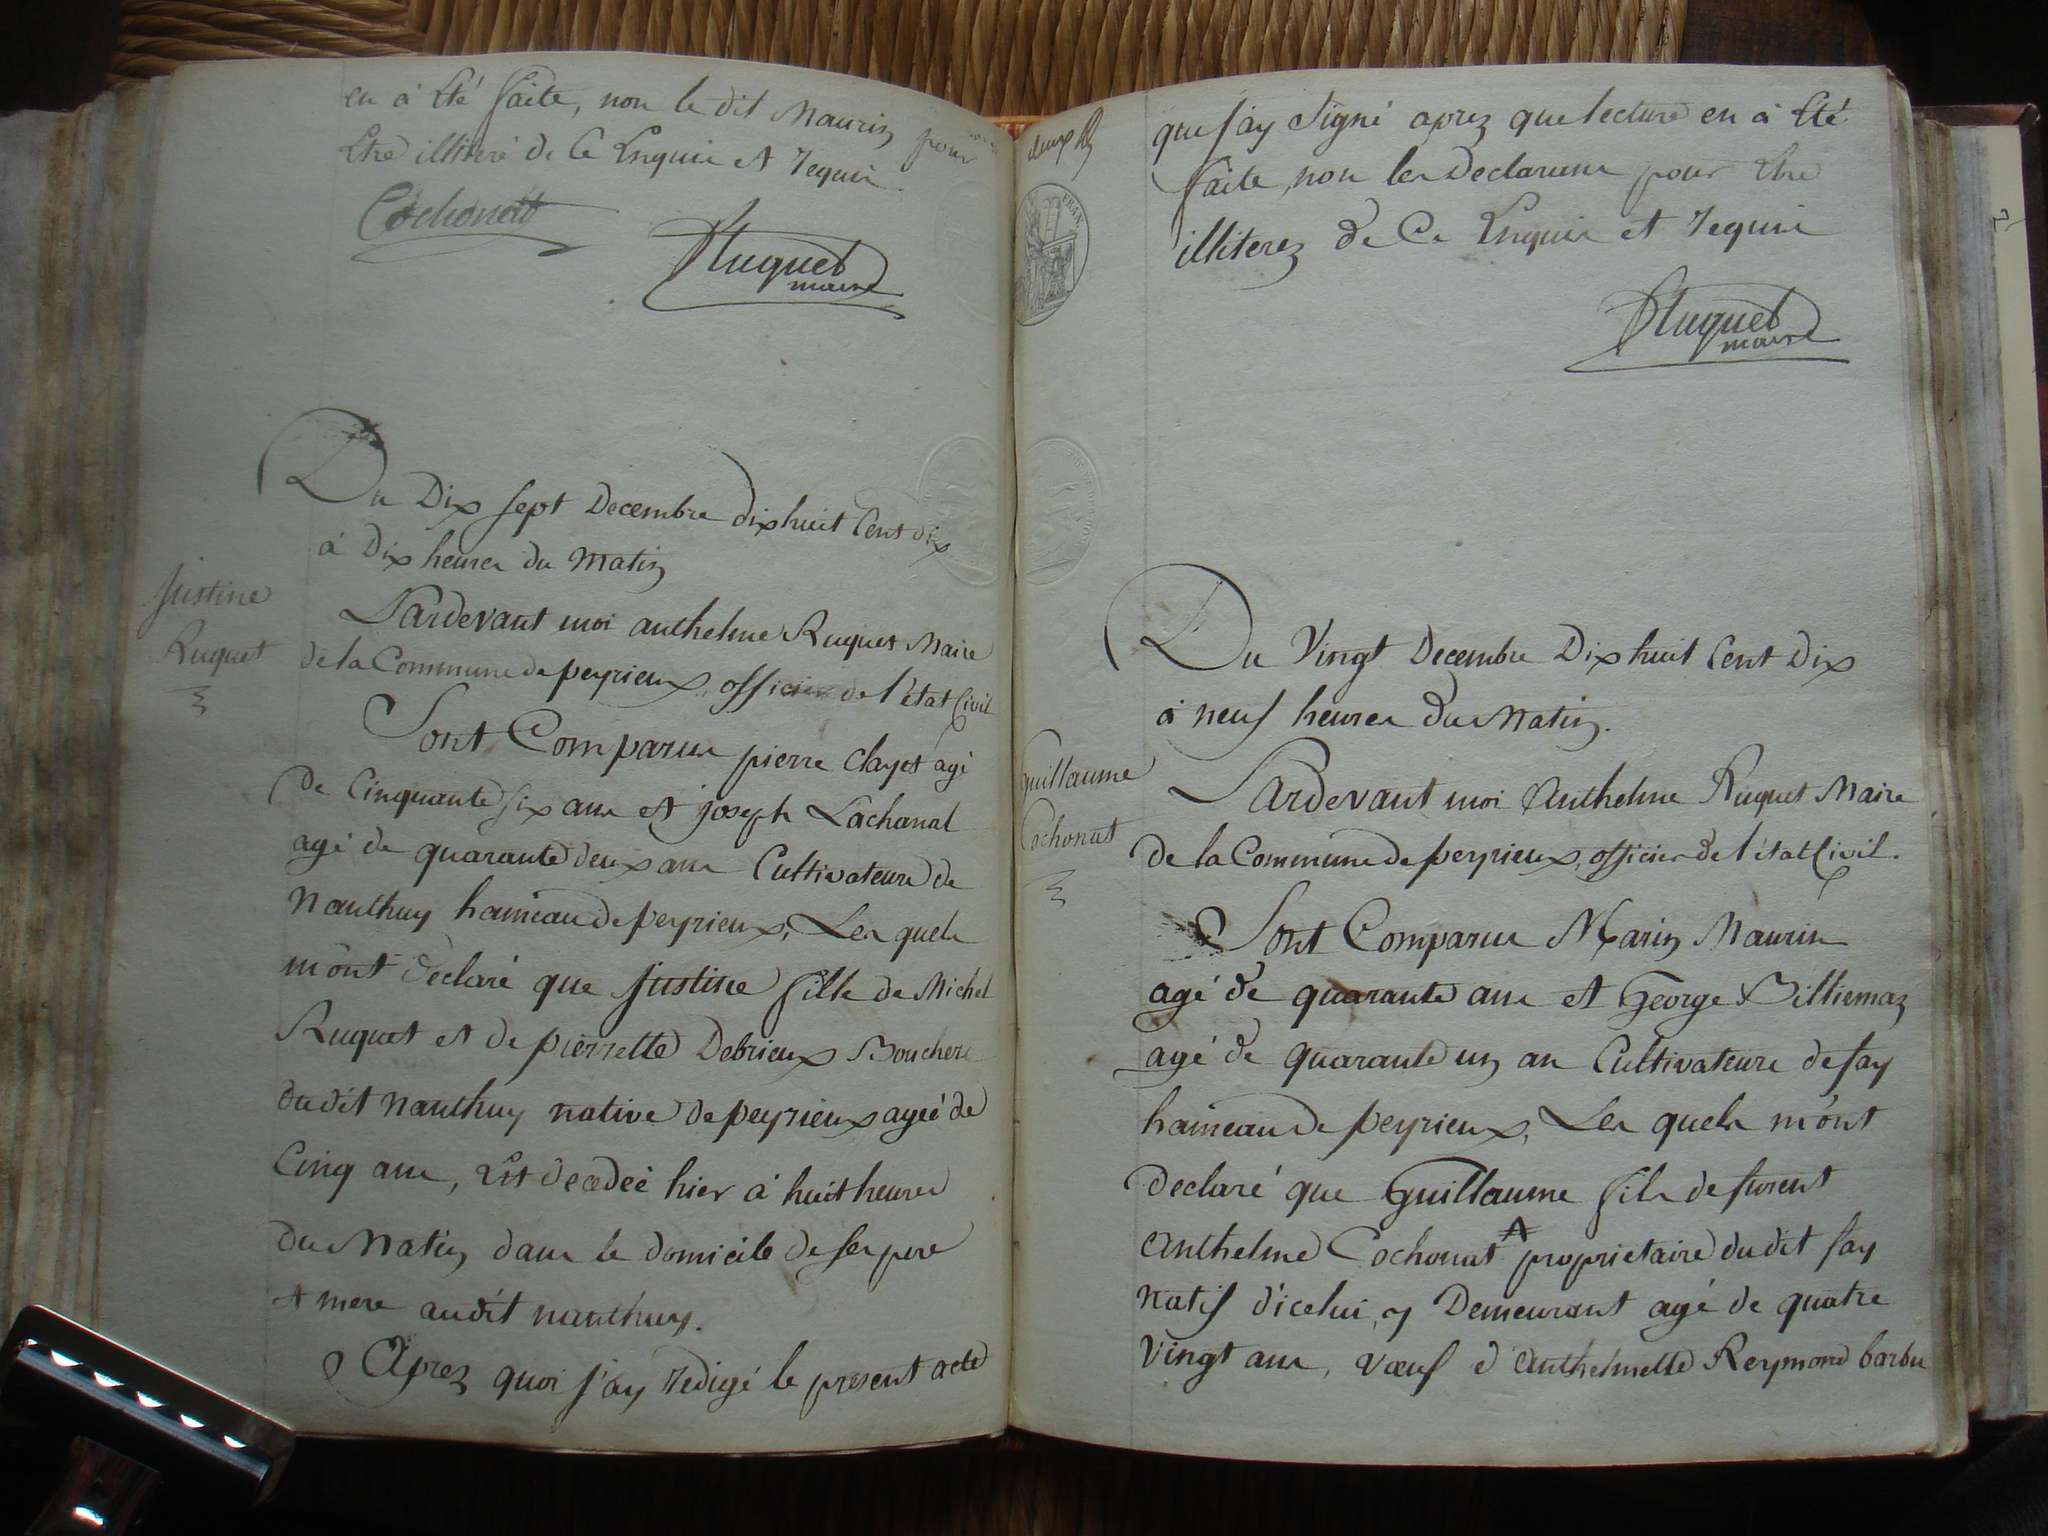 en à été faite, non le dit Maurin pour
être illiteré de ce Enquis et requis
Cochonat
Ruquet
maire
Du Dix sept Decembre dix huit Cent dix
à Dix heures du Matin
Justine
Ruquet
Pardevant moi anthelme Ruquet Maire
de la Commune de peyrieux, officier de l'état Civil
Sont Comparus pierre Clayet agé
de Cinquante six ans et joseph Lachanal
agé de quarante deux ans Cultivateurs de
Nanthuy hameau de peyrieux, Les quels
m'ont déclaré que Justine fille de Michel
Ruquet et de pierrette Debrieux Bouchers
dudit Nanthuy native de peyrieux agée de
Cinq ans, Est decedeé hier à huit heures
du Matin dans le domicile de ses pere
et mere audit nanthuy.
Aprez quoi j'ay redigé le present acte
que j'ay signé aprez que lecture en à été
faite, non les Declarans pour être
illiterez de Ce Enquis et requis
Ruquet
maire
FRAN
Du Vingt Decembre Dix huit Cent Dix
à neuf heures du Matin.
Guillaume
Cochonat
Pardevant moi Anthelme Ruquet Maire
de la Commune de peyrieux, officier de l'état Civil.
Sont Comparus Marin Maurin
agé de quarante ans et George Billiemaz
agé de quarante un an Cultivateurs de fay
hameau de peyrieux, Les quels m'ont
declaré que Guillaume fils de furent
Anthelme Cochonat propriétaire dudit fay
natif d'icelui, y Demeurant agé de quatre
Vingt ans, vœuf d'Anthelmette Reymond barbu